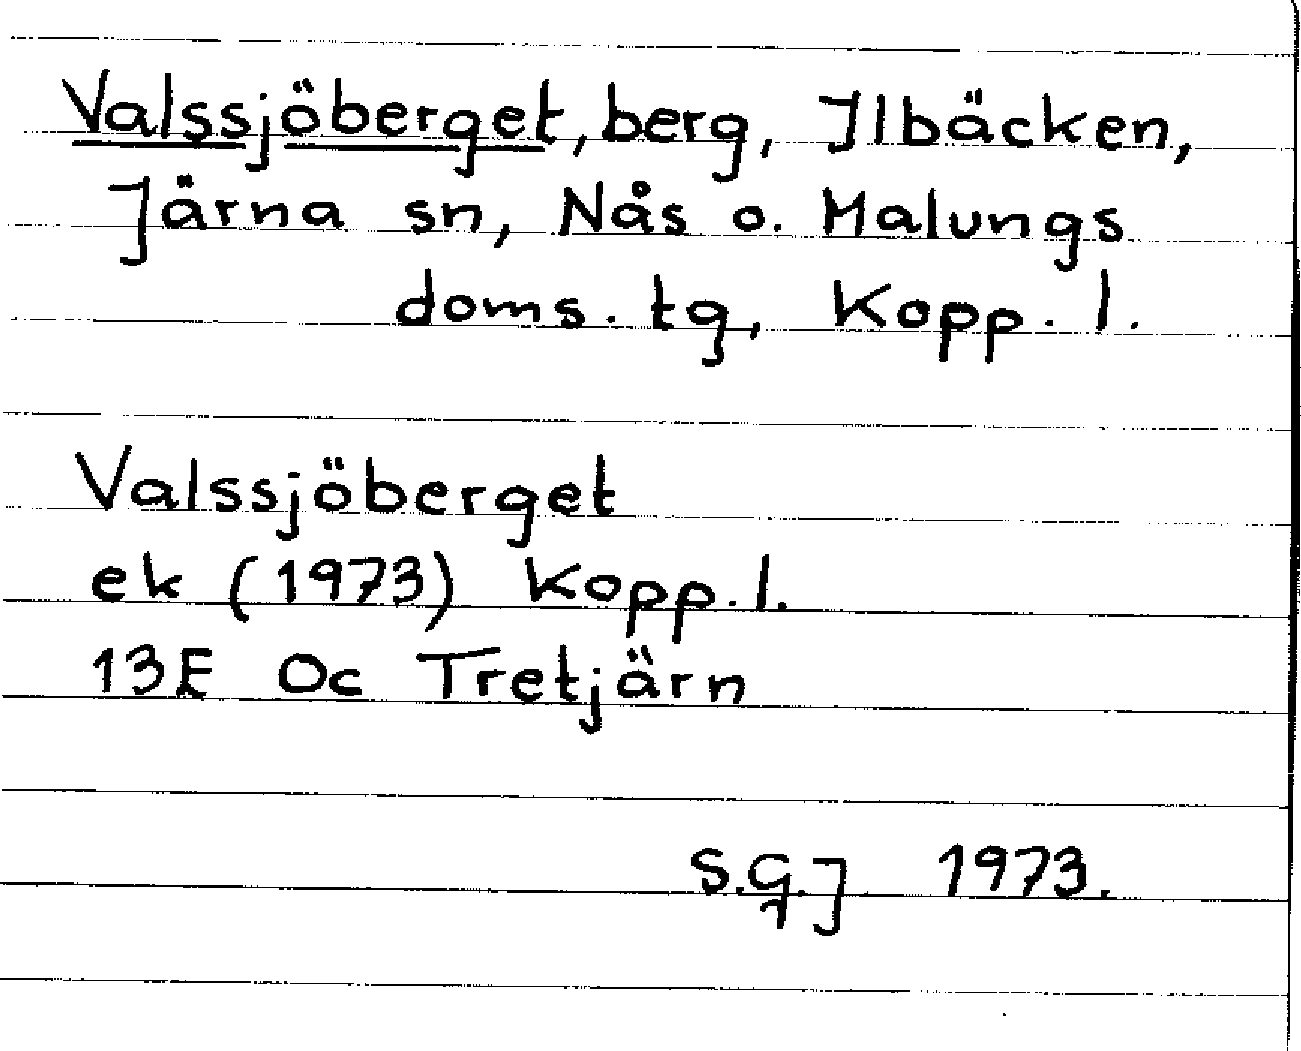 Valssjöberget, berg, Ilbäcken,
Järna sn, Nås o. Malungs
doms. tg, Kopp. l.
Valssjöberget
ek (1973) Kopp. l.
13E Oc Tretjärn
S.G.J 1973.